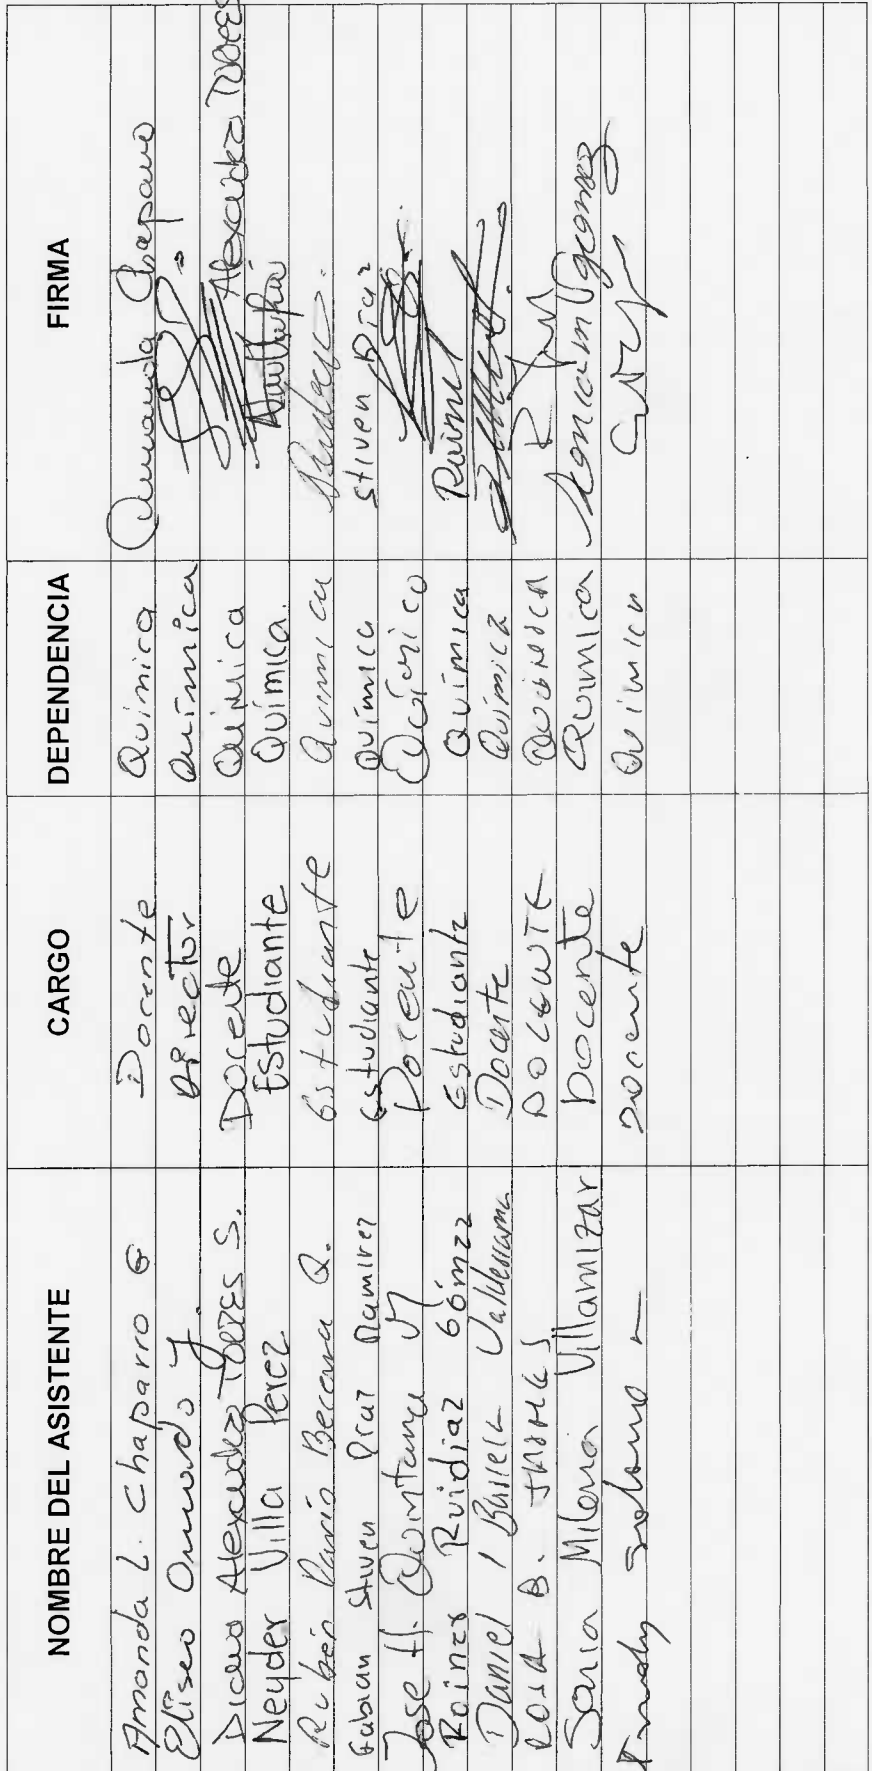 NOMBRE DEL ASISTENTE CARGO DEPENDENCIA FIRMA
Amanda L. Chaparro G Docente Química Amanda Chaparro
Eliseo Director Química
Alexandra TORRES S. Docente Química Alexandra TORRES
Neyder Villa Perez Estudiante Química.
Rubén Darío Becerra Q. Estudiante Química
Fabian Stiven Diaz Ramirez Estudiante Química Stiven Diaz
Jose H. Quintana M Docente Químico
Roiner Ruidiaz Gómez Estudiante Química
Daniel Valderrama Docente Química
ROSA B. DOCENTE QUIMICA
Sonia Milena Villamizar Docente Química
Solano Docente Química